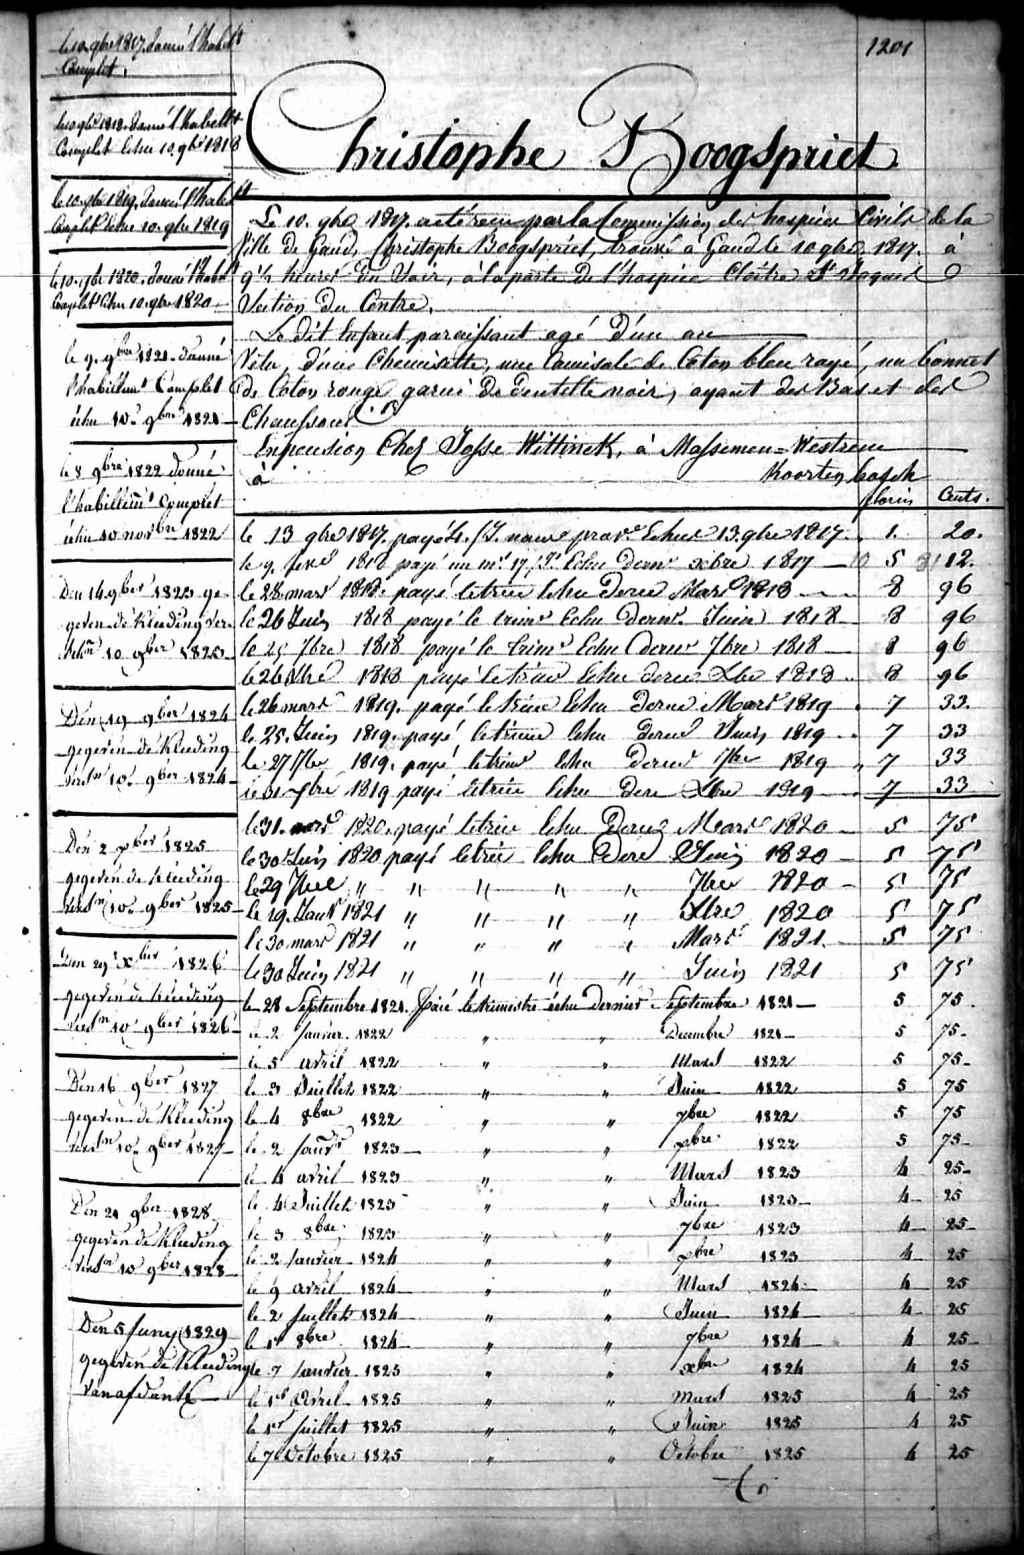 1201
le 10 gbre 1817. donné l'habillt
Complet.
le 10 gbre 1818. donné l'habillt
Complet échu 10. gbre 1818
le 10 gbre 1819. donné l'habillt
Complet échu 10. gbre 1819
le 10. gbre 1820. donné l'habillt
Complet échu 10. gbre 1820
le 9. gbre 1821. donné
l'habillemt Complet
échu 10. gbre 1821
le 8 gbre 1822 donné
l'habillemt Complet
échu 10 novbre 1822
Den 14 gber 1823 ge-
geven de kleeding ver-
10 gber 1823
Den 19 gber 1824
gegeven de kleeding
10. gber 1824
Den 2 1825
gegeven de kleeding
10. gber 1825
Den 29 xber 1826
gegeven de kleeding
10 gber 1826
Den 16 gber 1827
gegeven de kleeding
10. gber 1827
Den 21 gber 1828
gegeven de kleeding
10 gber 1828
Den 5 Juny 1829
gegeven de kleeding
Christophe Boogspriet
Le 10. gbre 1817. a été reçu par la Commission des hospices Civils de la
Ville de Gand, Christophe Boogspriet, trouvé à Gand le 10 gbre 1817. à
9½ heures du Soir, à la porte de l'hospice Cloître St
Section du Centre.
Le dit Enfant paraissant agé d'un an
Vetu d'une Chemisette, une Camisole de Coton bleu rayé, un bonnet
de Coton rouge garni de dentelle noir, ayant des Bas et des
Chaussons
En pension Chez Josse Wittinck, à Massemen-Westrem
à
florins Cents.
le 13 gbre 1817. payé Echus 13. gbre 1817. 1. 20.
le 9. 1818 payé un Echu xbre 1817 5 12.
le 28 mars 1818. payé le trim Echu dern Mars 1818 8 96
le 26 Juin 1818 payé le trimr Echu dernr Juin 1818 8 96
le 25 7bre 1818 payé le trimr Echu dernr 7bre 1818 8 96
le 26 Xbre 1818 payé le trim Echu dern Xbre 1818 8 96
le 26 mars 1819. payé le trim Echu dern Mars 1819 7 33.
le 25. Juin 1819. payé le trim Echu dern Juin 1819 7 33
le 27 7bre 1819. payé le trim Echu dern 7bre 1819 7 33
le 31 1819 payé le trim Echu dern Xbre 1819 7 33
le 31. mars 1820. payé le trim Echu Dern Mars 1820 5 75
le 30 Juin 1820 payé le trim Echu Dern Juin 1820 5 75
le 29 7bre " " " " " 7bre 1820 5 75
le 19. Janr 1821 " " " " Xbre 1820 5 75
le 30 mars 1821 " " " " Mars 1821 5 75
le 30 Juin 1821 " " " " Juin 1821 5 75
le 28 Septembre 1821. Paié le trimestre échu dernier Septembre 1821 5 75.
le 2 Janvier. 1822 " " Decembre 1821 5 75
le 5 avril 1822 " " Mars 1822 5 75
le 3 Juillet 1822 " " Juin 1822 5 75
le 4 8bre 1822 " " 7bre 1822 5 75
le 2 Janvr 1823 " " xbre 1822 5 75
le 4 avril 1823 " " Mars 1823 4 25
le 4 Juillet 1823 " " Juin 1823 4 25
le 3 8bre 1823 " " 7bre 1823 4 25
le 2 Janvier 1824 " " xbre 1823 4 25
le 9 avril 1824 " " Mars 1824 4 25
le 2 Juillet 1824 " " Juin 1824 4 25
le 1r 8bre 1824 " " 7bre 1824 4 25
le 7 Janvier 1825 " " xbre 1824 4 25
le 1r avril 1825 " " Mars 1825 4 25
le 1er Juillet 1825 " " Juin 1825 4 25
le 7 Octobre 1825 " " Octobre 1825 4 25